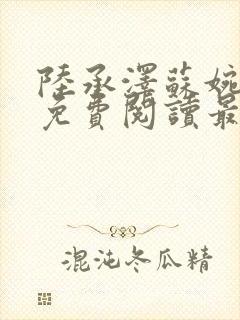 陸承澤蘇婉
免費閱讀最
混沌冬瓜精